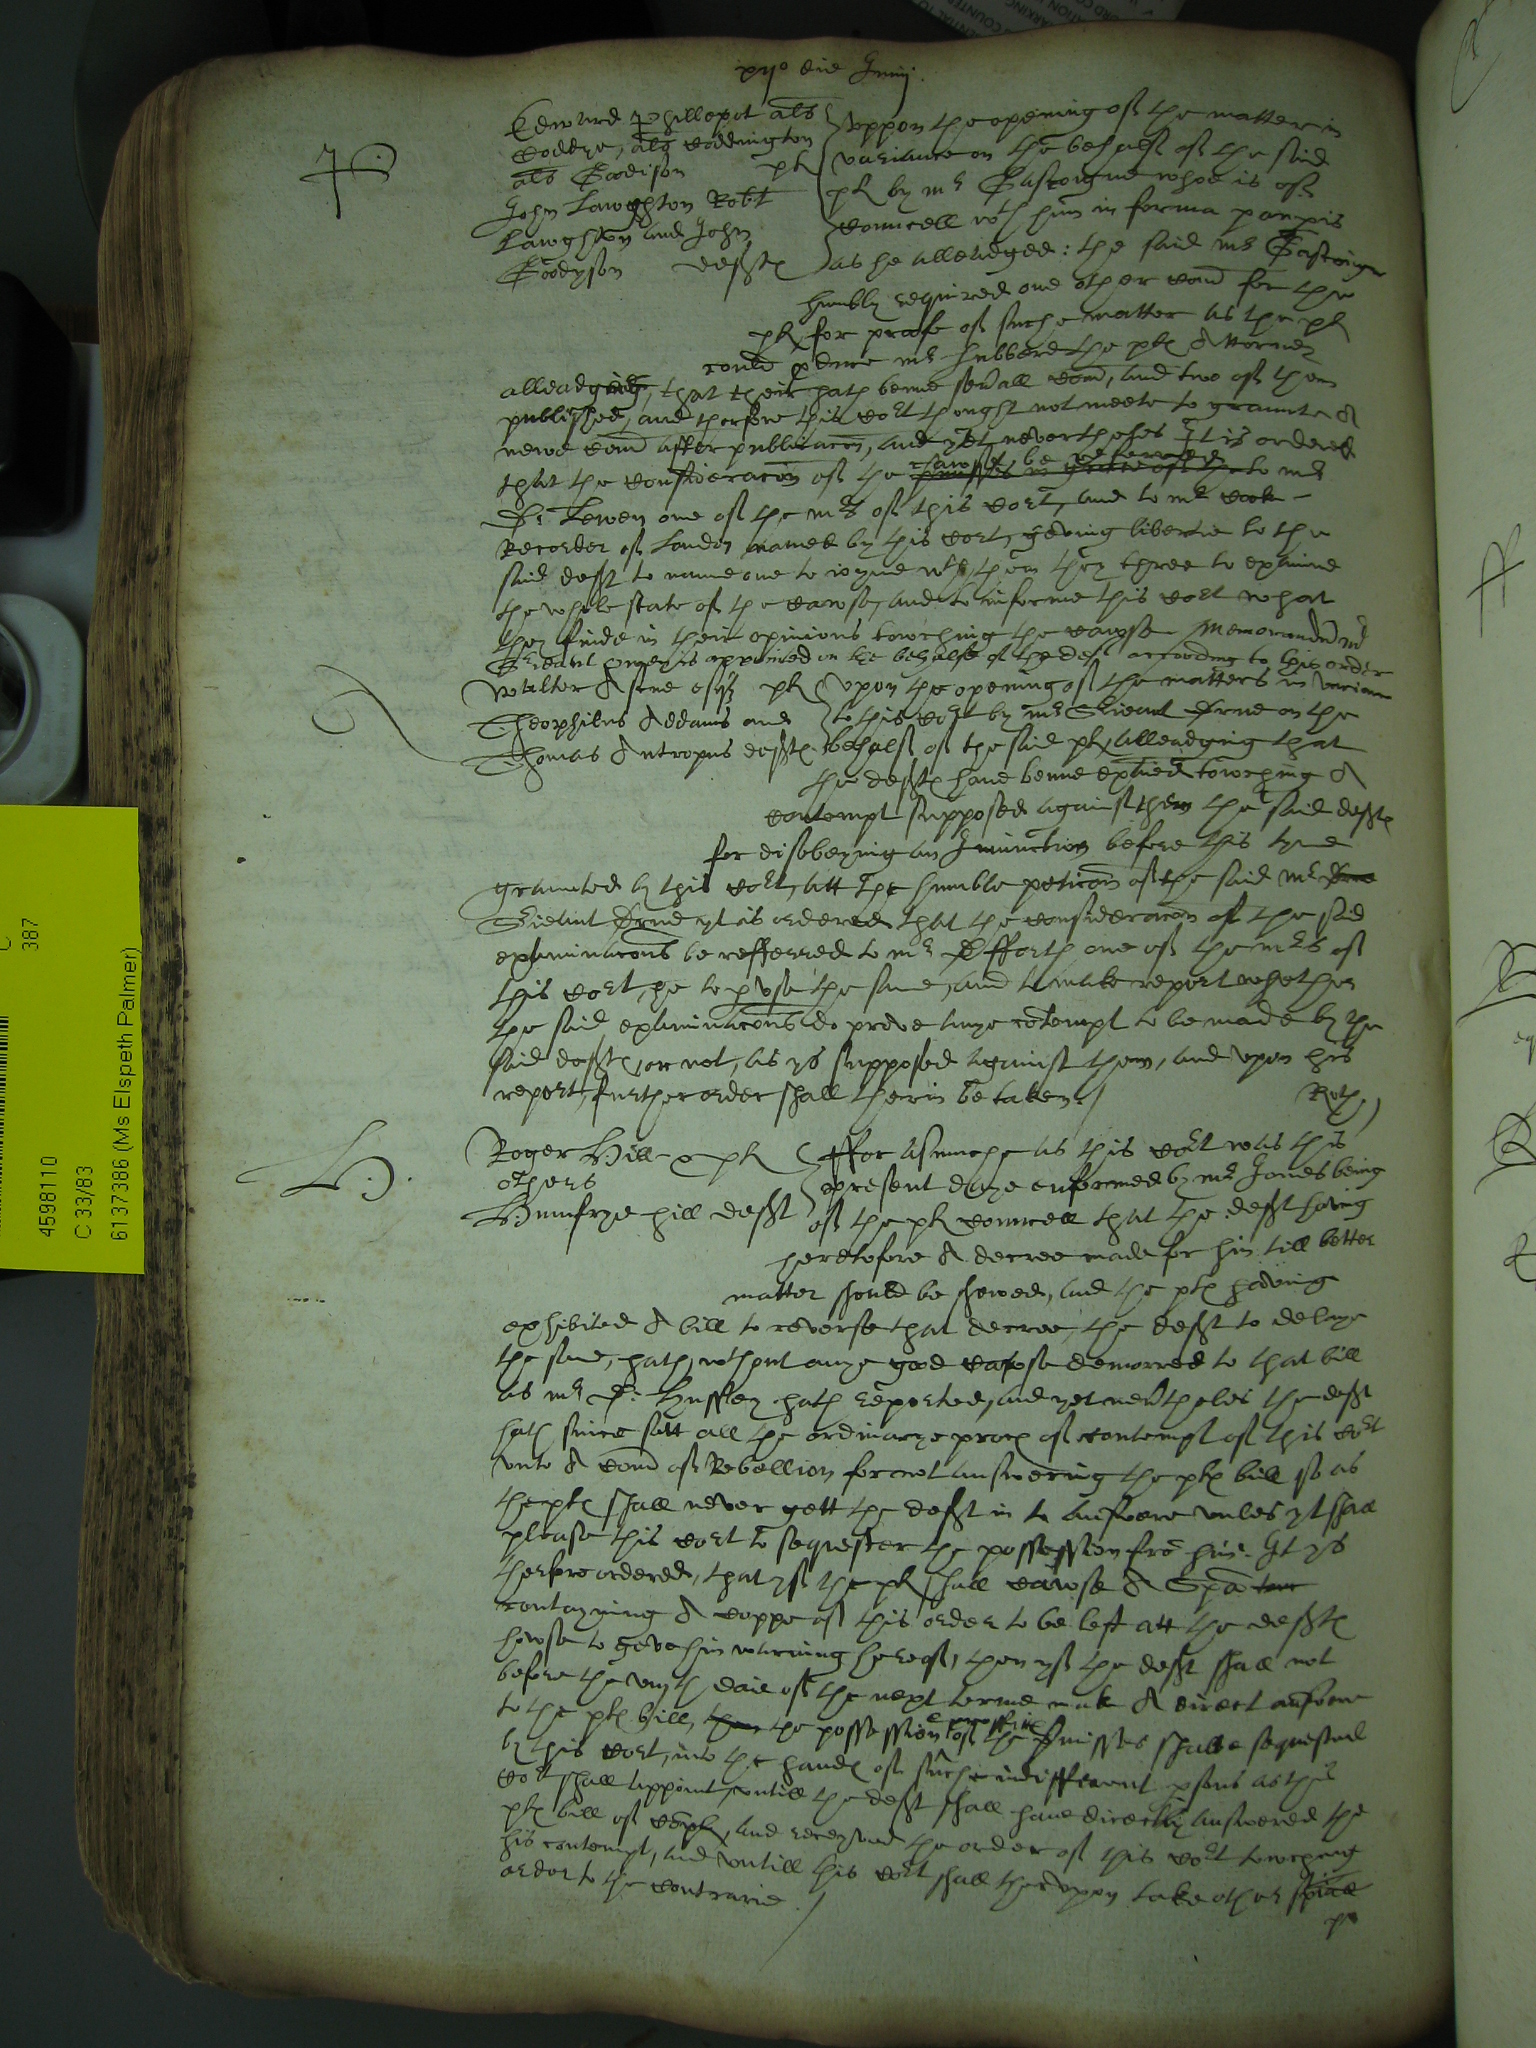 die Junij.
P.
Edward Phillepot als
Coddye, als Coddington
als Goodison plt
John Lawghton Robt
Lawghton and John
Goodyson defts
Uppon the opening of the matter in
variance on the behalf of the said
plt by mr Gascoigne who is of
councell wth him in forma paupis
as he alleadged: the said mr Gascoigne
humbly required one other comd for the
plt for proofe of suche matter as the plt
could pduce mr Hubberd the plts Attorney
alleadginge, that their hath benne sevall comd, and two of them
published, and therfore this cort thought not meete to graunte A
newe comd after publicacon, and yet nevertheles It is ordered
that the consideracon of the cawse be referred to mr
Dr Lewen one of the mrs of this cort, and to mr Cooke
Recorder of London named by this cort, geving libertie to the
said deft to name one to ioyne wth them they three to examine
the whole state of the cawse, and to informe this cort what
they finde in their opinions towching the cawse Memorandd mr
Srieant is appointed on the behalfe of the deft according to this order
Walter Aston esqr plt
Theophilus Addams and
Thomas Antropus defts
Upon the opening of the matters in variance
to this cort by mr Srieant Drue on the
behalf of the said plt, alleadging that
the defts have benne exaied towching A
contempt supposed against them the said defts
for disobeying an Iniunction before this tyme
graunted by this cort, att the humble peticon of the said mr Drue
Srieant Drue yt is ordered that the consideracon of the said
examinacons be refferred to mr Efforth one of the mrs of
this cort, he to pvse the same, and to make report whether
the said examinacons do prove anye contempt to be made by the
said defts, or not, as ys supposed against them, and upon his
report, further order shall therin be taken./
Roth
H.
Roger Hill & plt
others
Humfrye hill deft
Ffor asmuche as this cort was this
present daye enformed by mr Jones being
of the plts councell that the deft having
heretofore A decree made for him till better
matter should be shewed, and the plts having
exhibited A bill to reverse that decree, the deft to delaye
the same, hath wthout anye good cawse demorred to that bill
as mr Dr Hussey hath reported, and yet nevrtheles the deft
hath since satt all the ordinarye proces of contempt of this cort
unto A comd of Rebellion for not answering the plts bill so as
the plts shall never gett the deft in to answere unles yt shall
please this cort to sequester the possession fro him. It ys
therfore ordered, that yf the plt shall cawse A Spa
contayning A coppe of this order to be left att the defts
howse to geve him warning hereof, then yf the deft shall not
before the daie of the next terme make A direct answere
to the plts bill, then the possession & proffitts of the pmisses shalbe sequestred
by this cort, into the hands of suche indifferent psons as this
cort shall appoint, untill the deft shall have directly answered the
plts bill of compl, and receyved the order of this cort towching
his contempt, and untill this cort shall therupon take other spiall
order to the contrarie./
C
387
4598110
C 33/83
6137386 (Ms Elspeth Palmer)